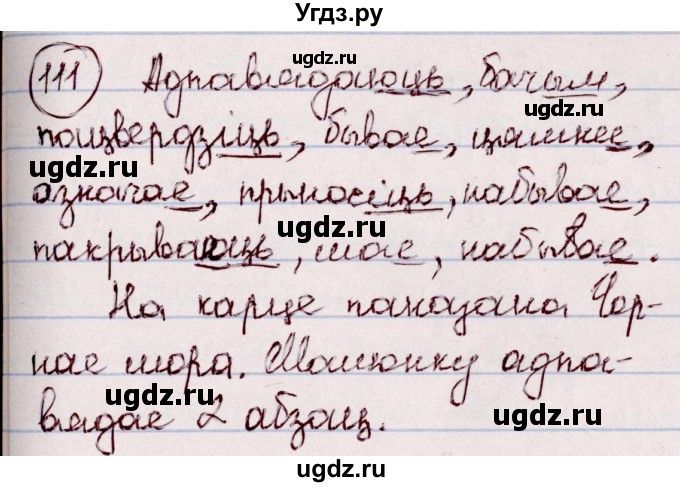 Угдз.ру
111 Адпавядаюць, бачым,
пацвердзіць, бывае, цямнее,
азначае, прыносіць, набывае,
пакрываюць, мае, набывае.
На карце паказана Чор-
нае мора. Малюнку адпа-
вядае 2 абзац.
ugdz.ru
ugdz.ru
ugdz.ru
ugdz.ru
ugdz.ru
ugdz.ru
ugdz.ru
ugdz.ru
ugdz.ru
ugdz.ru
ugdz.ru